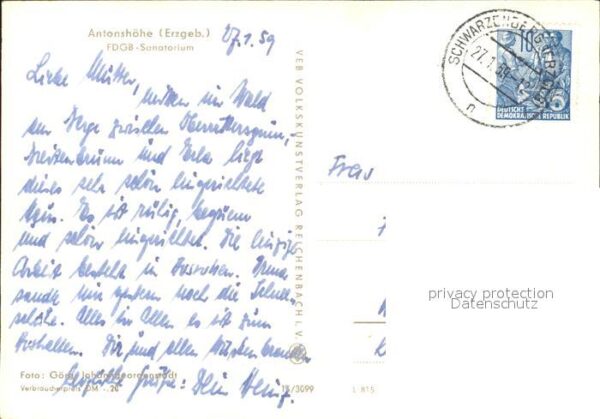 Antonshöhe (Erzgeb.)
FDGB-Sanatorium
27.1.59
Liebe Mutter,
mitten im Wald
am Berge zwischen
Breitenbrunn und Erla liegt
dieses sehr schön eingerichtete
Es ist ruhig, bequem
und schön eingerichtet. Die einzige
Arbeit besteht in Ausruhen.
sandte mir gestern noch die
Alles in Allem es ist zum
Aushalten. Dir und allen
herzliche Grüße: Dein Heinz.
Foto: Görg, Johanngeorgenstadt
Verbraucherpreis DM -.20
13/3099
VEB VOLKSKUNSTVERLAG REICHENBACH I. V.
SCHWARZENBERG (ERZGEB)
27.1.59
n
10
DEUTSCHE
DEMOKRATISCHE REPUBLIK
Frau
privacy protection
Datenschutz
L 815